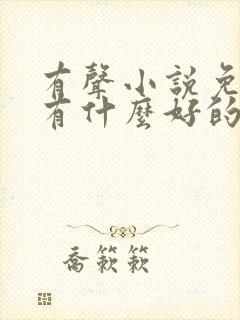 有聲小說免
有什麼好的
喬簌簌